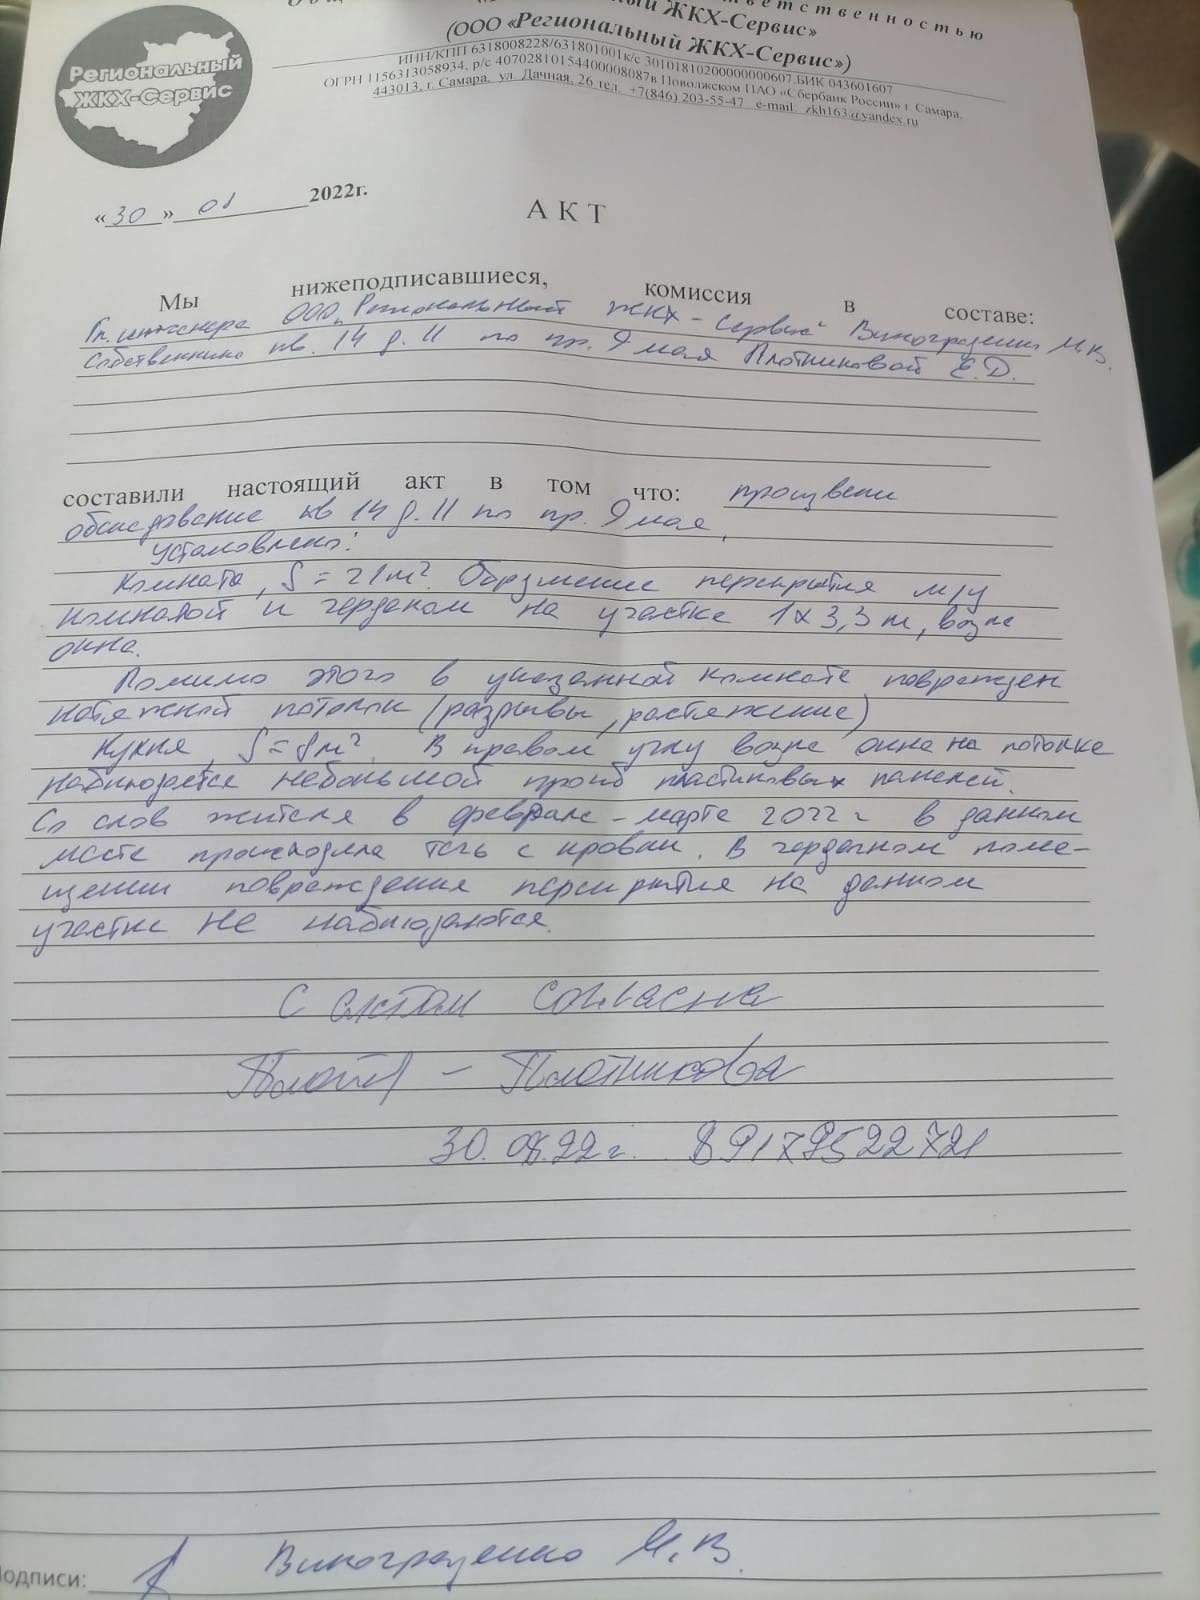 Региональный
ЖКХ-Сервис
ственностью
ЖКХ-Сервис»
(ООО «Региональный ЖКХ-Сервис»)
ИНН/КПП 6318008228/631801001к/с 30101810200000000607.БИК 043601607
ОГРН 1156313058934, р/с 40702810154400008087в Поволжском ПАО «Сбербанк России» г. Самара.
443013, г. Самара, ул. Дачная, 26 тел. +7(846) 203-55-47 e-mail. zkh163@yandex.ru
«30» 2022г.
АКТ
Мы нижеподписавшиеся, комиссия в составе:
Гл. инженера ООО „Региональный ЖКХ-Сервис" Винограденко М.В.
Собственника кв. 14 д. 11 по пр. 9 мая Плотниковой Е.Д.
составили настоящий акт в том что: произвели
обследование кв 14 д. 11 по пр. 9 мая,
установлено:
Комната, S = 21 м². Обрушение перекрытия м/у
комнатой и чердаком на участке 1 х 3,3 м, возле
окна.
Помимо этого в указанной комнате поврежден
натяжной потолок (разрывы, растяжение)
Кухня, S = 8 м². В правом углу возле окна на потолке
наблюдается небольшой прогиб пластиковых панелей.
Со слов жителя в феврале - марте 2022 г в данном
месте происходила течь с кровли. В чердачном поме-
щении повреждение перекрытия на данном
участке не наблюдаются.
С актом согласна
Плотникова
30.08.22 г. 89179522721
Подписи: Винограденко М.В.